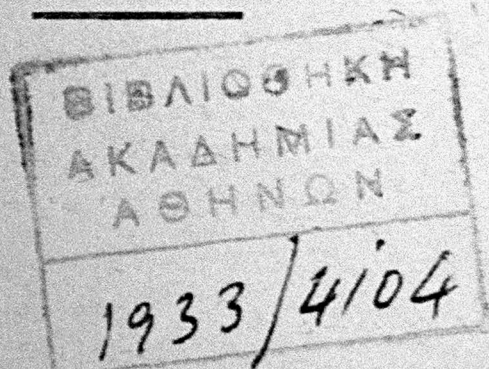 ΒΙΒΛΙΟΘΗΚΗ
ΑΚΑΔΗΜΙΑΣ
ΑΘΗΝΩΝ
1933/4104